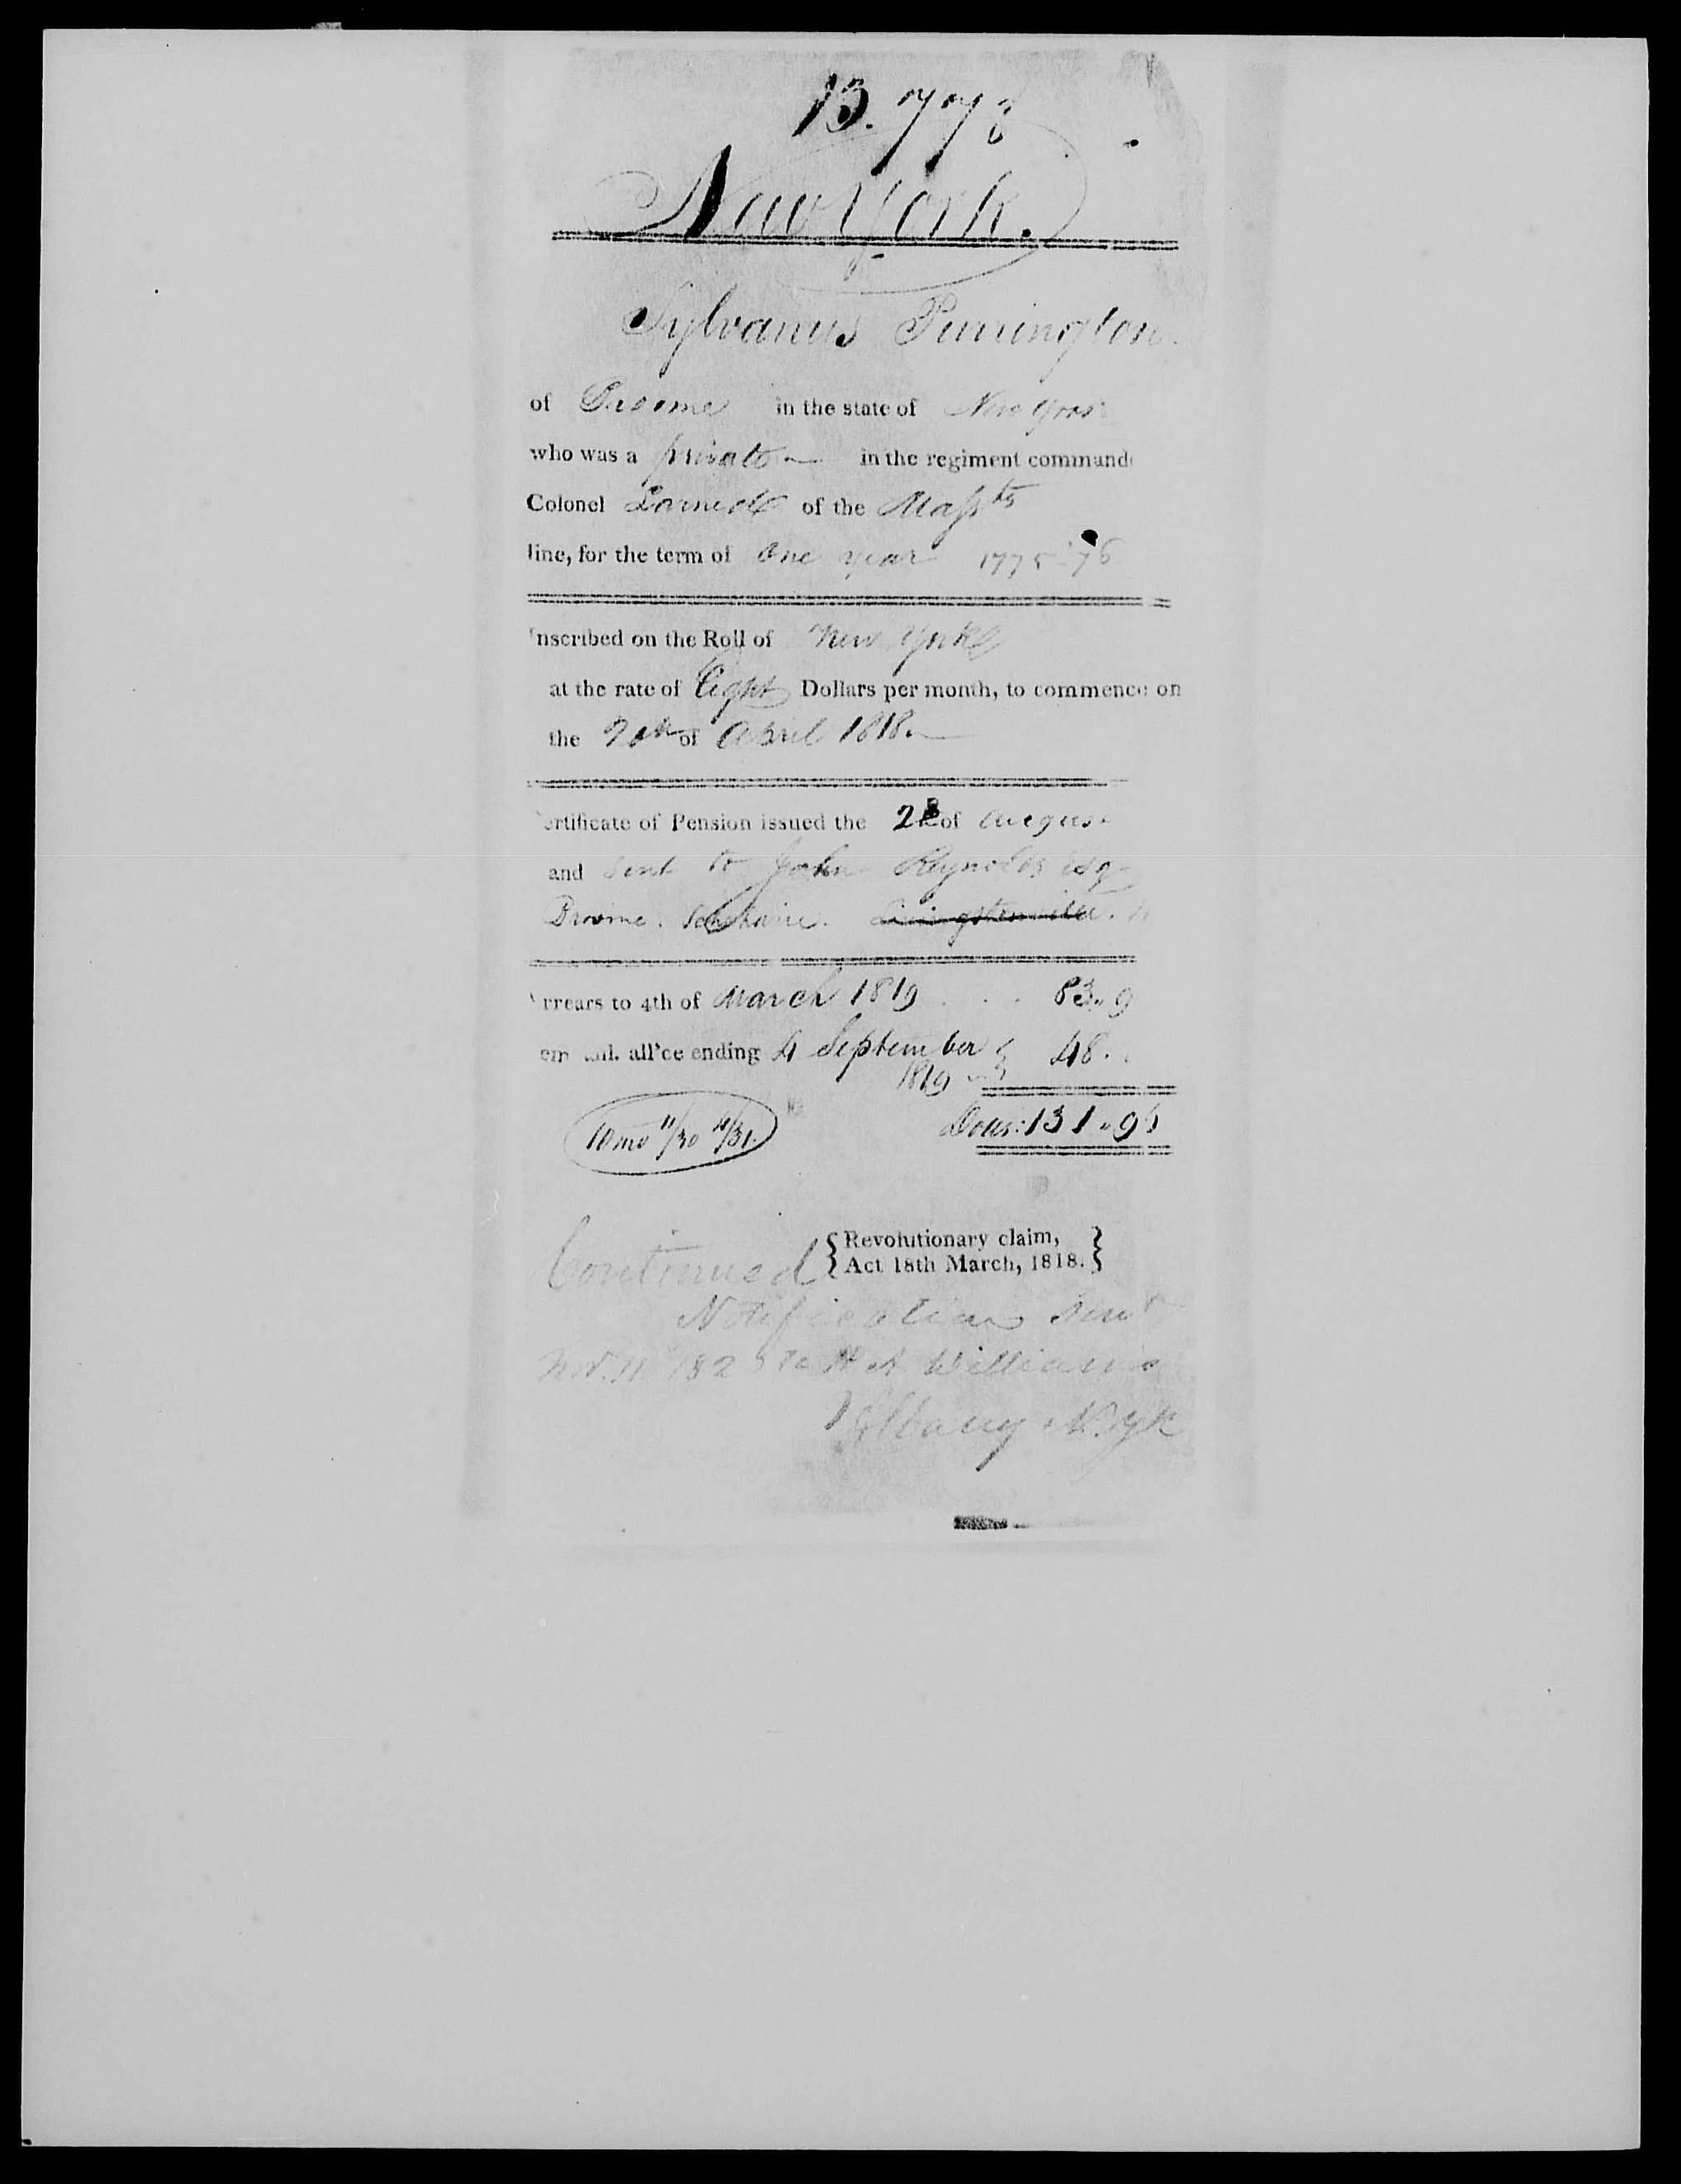 13.778
New York.
Sylvanus Purrington.
of Broome in the state of New York
who was a private in the regiment command
Colonel Larned of the Massts
line, for the term of One year 1775-76
nscribed on the Roll of New York
at the rate of Eight Dollars per month, to commence on
the 20th of April 1818.
ertificate of Pension issued the 28 of August
and sent to John Reynolds Esq
Broome. Schoharie. Livingstonville.
rrears to 4th of March 1819 . . . 83.9
all'ce ending 4 September } 48..
1819
Dolls: 131.9
10 mo 11/30 4/31.
Continued {Revolutionary claim,
Act 18th March, 1818.}
Notification sent
Nov. 11 182 to A Williams
Albany N. Yk